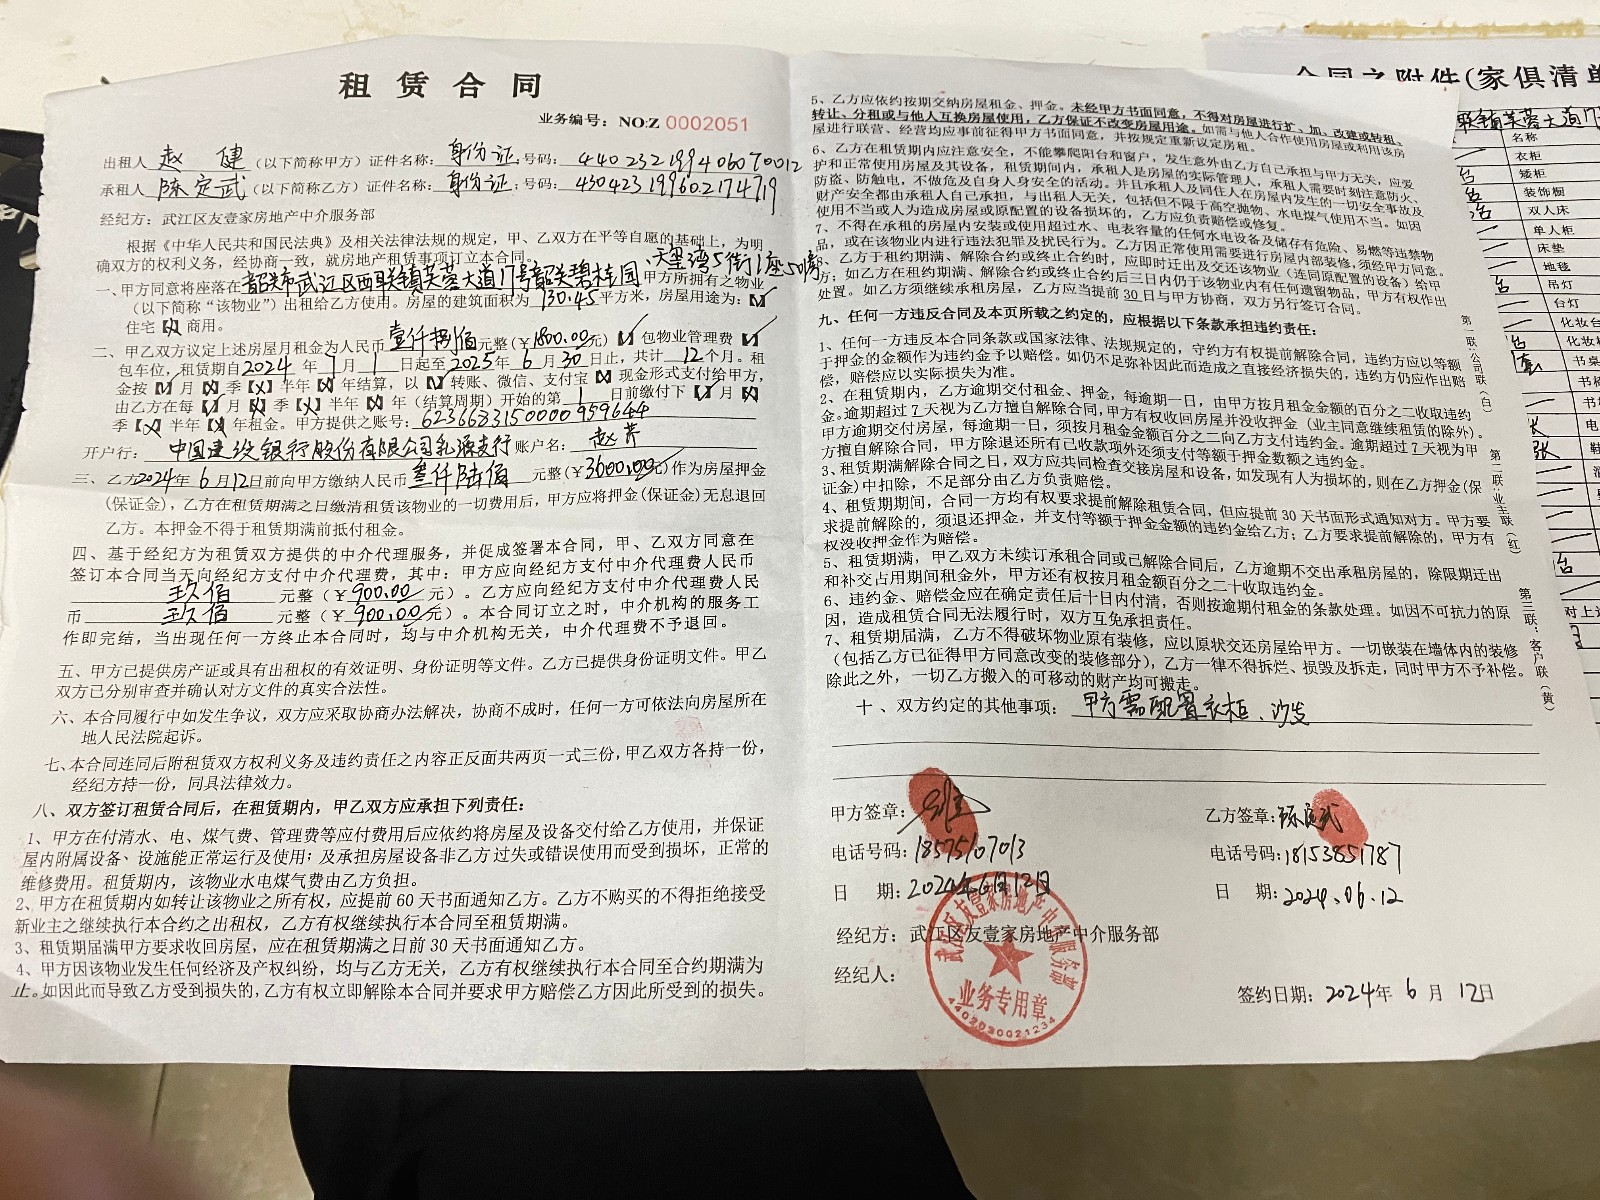 租赁合同
业务编号：NO:Z 0002051
出租人 赵健（以下简称甲方）证件名称：身份证；号码：440232199406070012
承租人 陈定武（以下简称乙方）证件名称：身份证；号码：430423199602174719
经纪方：武江区友壹家房地产中介服务部
根据《中华人民共和国民法典》及相关法律法规的规定，甲、乙双方在平等自愿的基础上，为明
确双方的权利义务，经协商一致，就房地产租赁事项订立本合同。
天玺湾5街1座50
一、甲方同意将座落在韶关市武江区西联镇芙蓉大道17号韶关碧桂园 甲方所拥有之物业
（以下简称“该物业”）出租给乙方使用。房屋的建筑面积为 130.45 平方米，房屋用途为：【√】
住宅【×】商用。
二、甲乙双方议定上述房屋月租金为人民币 壹仟捌佰 元整（￥1800.00元）【√】包物业管理费【√】
包车位，租赁期自2024年7月1日起至2025年6月30日止，共计12个月。租
金按【√】月【×】季【×】半年【×】年结算，以【√】转账、微信、支付宝【×】现金形式支付给甲方，
由乙方在每【√】月【×】季【×】半年【×】年（结算周期）开始的第 1 日前缴付下【√】月【×】
季【×】半年【×】年租金。甲方提供之账号：6236683150000959644
开户行：中国建设银行股份有限公司乳源支行 账户名：赵
三、乙方2024年6月12日前向甲方缴纳人民币 叁仟陆佰 元整（￥3600.00元）作为房屋押金
（保证金），乙方在租赁期满之日缴清租赁该物业的一切费用后，甲方应将押金（保证金）无息退回
乙方。本押金不得于租赁期满前抵付租金。
四、基于经纪方为租赁双方提供的中介代理服务，并促成签署本合同，甲、乙双方同意在
签订本合同当天向经纪方支付中介代理费，其中：甲方应向经纪方支付中介代理费人民币
玖佰 元整（￥900.00元）。乙方应向经纪方支付中介代理费人民
币 玖佰 元整（￥900.00元）。本合同订立之时，中介机构的服务工
作即完结，当出现任何一方终止本合同时，均与中介机构无关，中介代理费不予退回。
五、甲方已提供房产证或具有出租权的有效证明、身份证明等文件。乙方已提供身份证明文件。甲乙
双方已分别审查并确认对方文件的真实合法性。
六、本合同履行中如发生争议，双方应采取协商办法解决，协商不成时，任何一方可依法向房屋所在
地人民法院起诉。
七、本合同连同后附租赁双方权利义务及违约责任之内容正反面共两页一式三份，甲乙双方各持一份，
经纪方持一份，同具法律效力。
八、双方签订租赁合同后，在租赁期内，甲乙双方应承担下列责任：
1、甲方在付清水、电、煤气费、管理费等应付费用后应依约将房屋及设备交付给乙方使用，并保证
屋内附属设备、设施能正常运行及使用；及承担房屋设备非乙方过失或错误使用而受到损坏，正常的
维修费用。租赁期内，该物业水电煤气费由乙方负担。
2、甲方在租赁期内如转让该物业之所有权，应提前60天书面通知乙方。乙方不购买的不得拒绝接受
新业主之继续执行本合约之出租权，乙方有权继续执行本合同至租赁期满。
3、租赁期届满甲方要求收回房屋，应在租赁期满之日前30天书面通知乙方。
4、甲方因该物业发生任何经济及产权纠纷，均与乙方无关，乙方有权继续执行本合同至合约期满为
止。如因此而导致乙方受到损失的，乙方有权立即解除本合同并要求甲方赔偿乙方因此所受到的损失。
5、乙方应依约按期交纳房屋租金、押金。未经甲方书面同意，不得对房屋进行扩、加、改建或转租、
转让、分租或与他人互换房屋使用，乙方保证不改变房屋用途。如需与他人合作使用房屋或利用该房
屋进行联营、经营均应事前征得甲方书面同意，并按规定重新议定房租。
6、乙方在租赁期内应注意安全，不能攀爬阳台和窗户，发生意外由乙方自己承担与甲方无关，应爱
护和正常使用房屋及其设备，租赁期间内，承租人是房屋的实际管理人，承租人需要时刻注意防火、
防盗、防触电，不做危及自身人身安全的活动。并且承租人及同住人在房屋内发生的一切安全事故及
财产安全都由承租人自己承担，与出租人无关，包括但不限于高空抛物、水电煤气使用不当。如因
使用不当或人为造成房屋或原配置的设备损坏的，乙方应负责赔偿或修复。
7、不得在承租的房屋内安装或使用超过水、电表容量的任何水电设备及储存有危险、易燃等违禁物
品，或在该物业内进行违法犯罪及扰民行为。乙方因正常使用需要进行房屋内部装修，须经甲方同意。
8、乙方于租约期满、解除合约或终止合约时，应即时迁出及交还该物业（连同原配置的设备）给甲
方；如乙方在租约期满、解除合约或终止合约后三日内仍于该物业内有任何遗留物品，甲方有权作出
处置。如乙方须继续承租房屋，乙方应当提前30日与甲方协商，双方另行签订合同。
九、任何一方违反合同及本页所载之约定的，应根据以下条款承担违约责任：
1、任何一方违反本合同条款或国家法律、法规规定的，守约方有权提前解除合同，违约方应以等额
于押金的金额作为违约金予以赔偿。如仍不足弥补因此而造成之直接经济损失的，违约方仍应作出赔
偿，赔偿应以实际损失为准。
2、在租赁期内，乙方逾期交付租金、押金，每逾期一日，由甲方按月租金金额的百分之二收取违约
金。逾期超过7天视为乙方擅自解除合同，甲方有权收回房屋并没收押金（业主同意继续租赁的除外）。
甲方逾期交付房屋，每逾期一日，须按月租金金额百分之二向乙方支付违约金。逾期超过7天视为甲
方擅自解除合同，甲方除退还所有已收款项外还须支付等额于押金数额之违约金。
3、租赁期满解除合同之日，双方应共同检查交接房屋和设备，如发现有人为损坏的，则在乙方押金（保
证金）中扣除，不足部分由乙方负责赔偿。
4、租赁期期间，合同一方均有权要求提前解除租赁合同，但应提前30天书面形式通知对方。甲方要
求提前解除的，须退还押金，并支付等额于押金金额的违约金给乙方；乙方要求提前解除的，甲方有
权没收押金作为赔偿。
5、租赁期满，甲乙双方未续订承租合同或已解除合同后，乙方逾期不交出承租房屋的，除限期迁出
和补交占用期间租金外，甲方还有权按月租金额百分之二十收取违约金。
6、违约金、赔偿金应在确定责任后十日内付清，否则按逾期付租金的条款处理。如因不可抗力的原
因，造成租赁合同无法履行时，双方互免承担责任。
7、租赁期届满，乙方不得破坏物业原有装修，应以原状交还房屋给甲方。一切嵌装在墙体内的装修
（包括乙方已征得甲方同意改变的装修部分），乙方一律不得拆烂、损毁及拆走，同时甲方不予补偿。
除此之外，一切乙方搬入的可移动的财产均可搬走。
十、双方约定的其他事项：甲方需配置衣柜、沙发
甲方签章：
乙方签章：陈定武
电话号码：18575107013
电话号码：18153851787
日 期：2024年6月12日
日 期：2024.06.12
经纪方：武江区友壹家房地产中介服务部
经纪人：
签约日期：2024年6月12日
武江区友壹家房地产中介服务部
业务专用章
4402030021234
第一联：公司联（白）
第二联：业主联（红）
第三联：客户联（黄）
合同之附件（家俱清单
联镇芙蓉大道17
名称
衣柜
矮柜
装饰橱
双人床
单人柜
床垫
地毯
吊灯
台灯
化妆台
化妆
书桌
书
书
电
鞋
对上